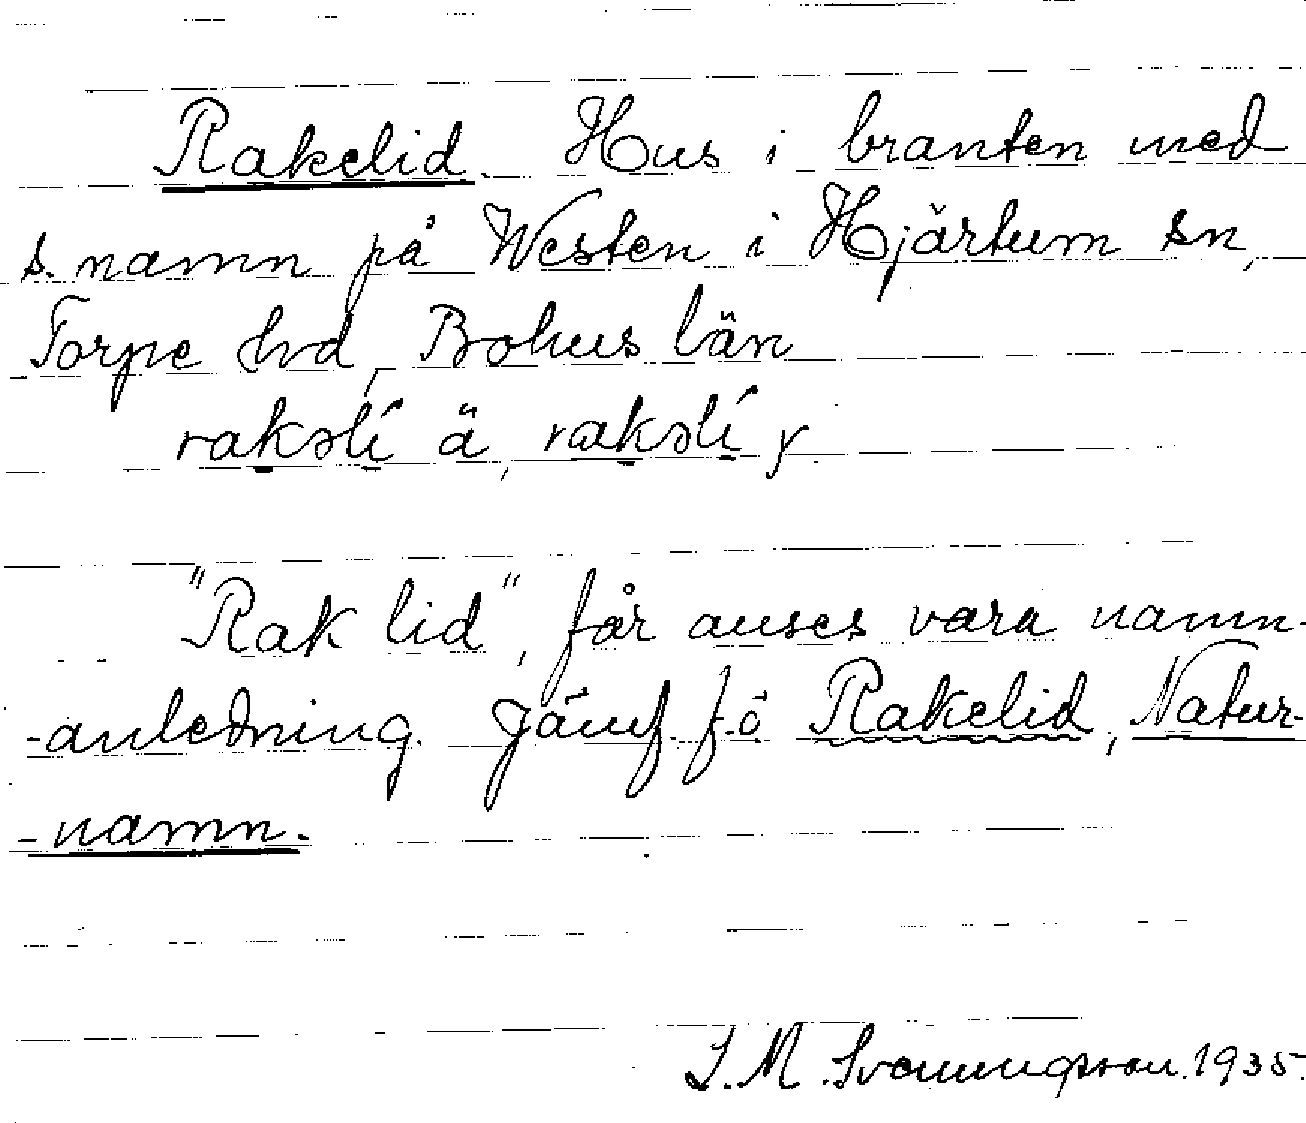 Rakelid. Hus i branten med
s. namn på Westen i Hjärtum sn,
Torpe hd, Bohus län
rakəlí ä, rakəlí y.
"Rak lid", får anses vara namn-
-anledning. Jämf. f-ö Rakelid, Natur-
-namn.
J. M. Svenningsson. 1935.